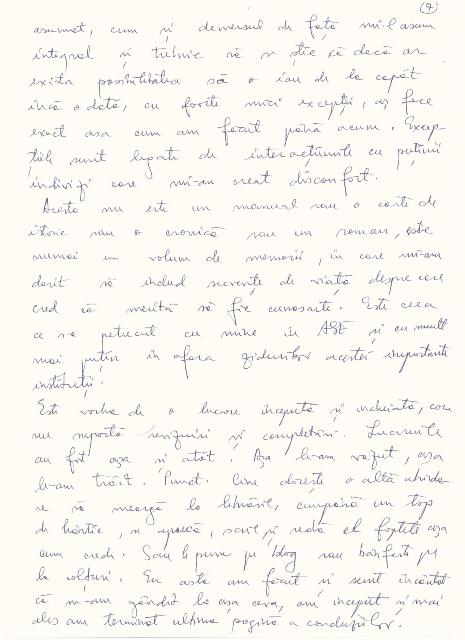 (7)
asumat, cum și demersul de față mi-l asum
integral și trebuie să se știe că dacă ar
exista posibilitatea să o iau de la capăt
încă o dată, cu foarte mici excepții, aș face
exact așa cum am făcut până acum. Excep-
țiile sunt legate de interacțiunile cu puținii
indivizi care mi-au creat disconfort.
Acesta nu este un manual sau o carte de
istorie sau o cronică sau un roman, este
numai un volum de memorii, în care mi-am
dorit să includ secvențe de viață despre care
cred că merită să fie cunoscute. Este ceea
ce s-a petrecut cu mine în ASE și cu mult
mai puțin în afara zidurilor acestei importante
instituții.
Este vorba de o lucrare începută și încheiată, care
nu suportă revizuiri și completări. Lucrurile
au fost așa și atât. Așa le-am văzut, așa
le-am trăit. Punct. Cine dorește o altă aborda-
re să meargă la librărie, cumpără un top
de hârtie, se apucă, scrie și redă el faptele așa
cum crede. Sau le pune pe blog sau bârfește pe
la colțuri. Eu asta am făcut și sunt încântat
că m-am gândit la așa ceva, am început și mai
ales am terminat ultima pagină a conduzilor.